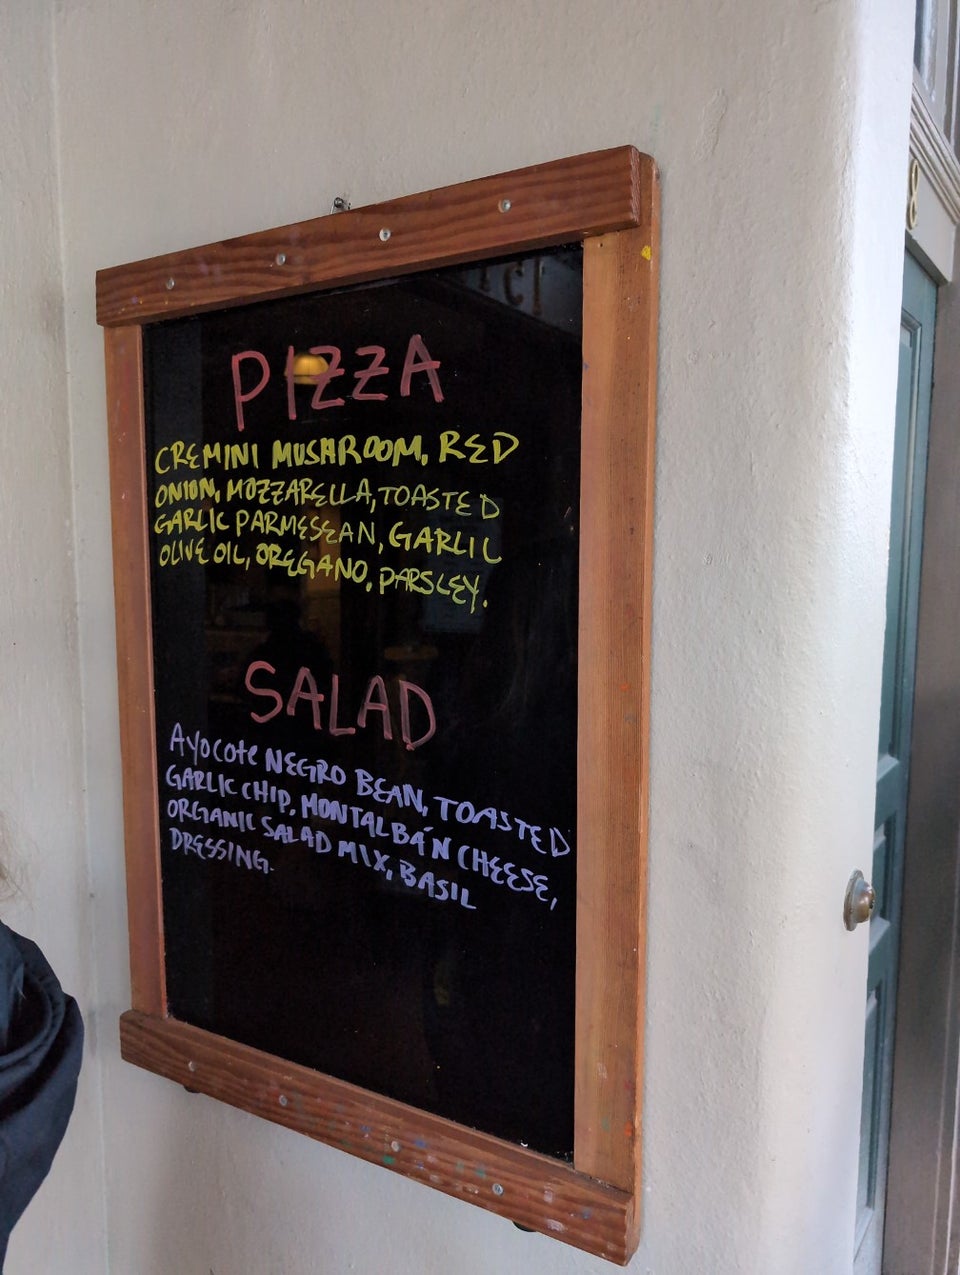 PIZZA
CREMINI MUSHROOM, RED
ONION, MOZZARELLA, TOASTED
GARLIC PARMESEAN, GARLIC
OLIVE OIL, OREGANO, PARSLEY.
SALAD
AYOCOTE NEGRO BEAN, TOASTED
GARLIC CHIP, MONTALBÁN CHEESE,
ORGANIC SALAD MIX, BASIL
DRESSING.
8